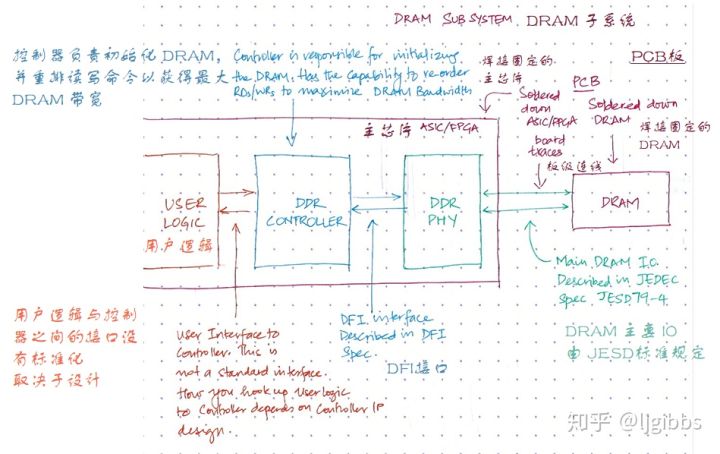 DRAM SUBSYSTEM DRAM 子系统
控制器负责初始化 DRAM,
并重排读写命令以获得最大
DRAM 带宽
Controller is responsible for initializing
the DRAM. Has the capability to re-order
RDs/WRs to maximize DRAM Bandwidth
焊接固定的
主芯片
PCB板
PCB
Soldered
down
ASIC/FPGA
Soldered down
DRAM
焊接固定的
DRAM
主芯片 ASIC/FPGA
board
traces
板级连线
USER
LOGIC
用户逻辑
DDR
CONTROLLER
DDR
PHY
DRAM
Main DRAM IO.
Described in JEDEC
Spec JESD79-4
DRAM 主要 IO
由 JESD标准规定
DFI interface
Described in DFI
Spec.
DFI接口
用户逻辑与控制
器之间的接口没
有标准化
取决于设计
User Interface to
Controller. This is
not a standard interface.
How you hook up user logic
to Controller depends on Controller IP
design.
知乎 @ljgibbs